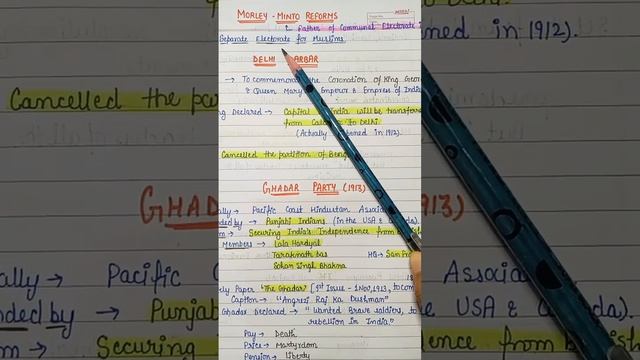 MORLEY - MINTO REFORMS
Father of Communal Electorate
Separate Electorate for Muslims
DELHI
→ To commemorate the Coronation of King Geor
& Queen Mary Emperor & Empress of India
ng Declared → Capital India will be transfer
from Calc to Delhi
(Actually ned in 1912).
Cancelled the partition of Beng
GHADAR PARTY (1913)
ally → Pacific Coast Hindustan Associa
nded by → Punjabi Indians (in the USA & Canada).
m → Securing India's Independence from B
Members → Lala Hardyal
Taraknath Das HQ → San
Sohan Singh Bhakna
ly Paper 'The Ghadar' [1st Issue - 1 Nov, 1913, to com
Caption → "Angrezi Raj ka Dushman"
Ghadar Declared → "Wanted Brave soldiers, to
rebellion in India"
Pay → Death
Price → Martyrdom
Pension → Liberty
Cancelled the
GHA
ally → Pacific
nded by → Punjab
m → Securing
in 1912).
13)
Associa
the USA &
ence from